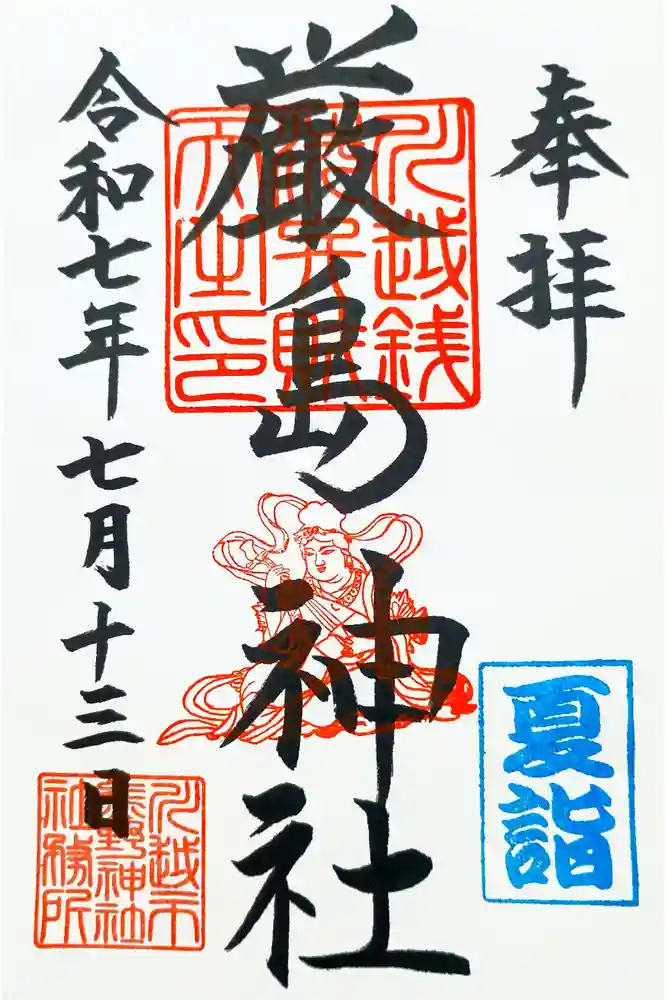 奉拝
夏詣
厳島神社
川越銭
洗弁財
天之印
令和七年七月十三日
川越市
熊野神社
社務所